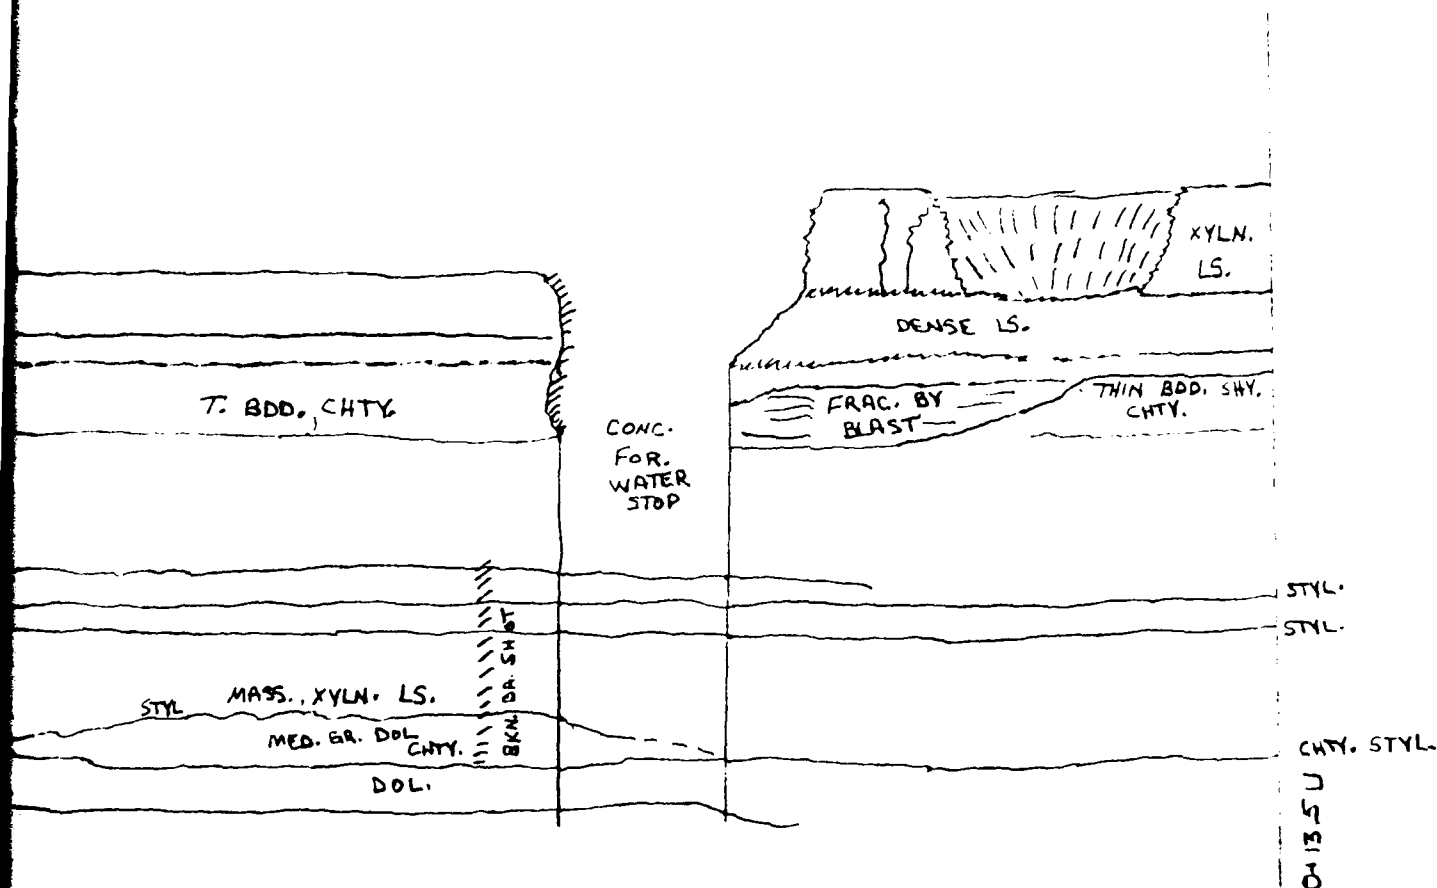 XYLN.
LS.
DENSE LS.
T. BDD., CHTY.
FRAC. BY
BLAST
THIN BDD. SHY.
CHTY.
CONC.
FOR.
WATER
STOP
STYL.
STYL.
BKN. BA. SHOT
MASS., XYLN. LS.
STYL
MED. GR. DOL
CHTY.
DOL.
CHTY. STYL.